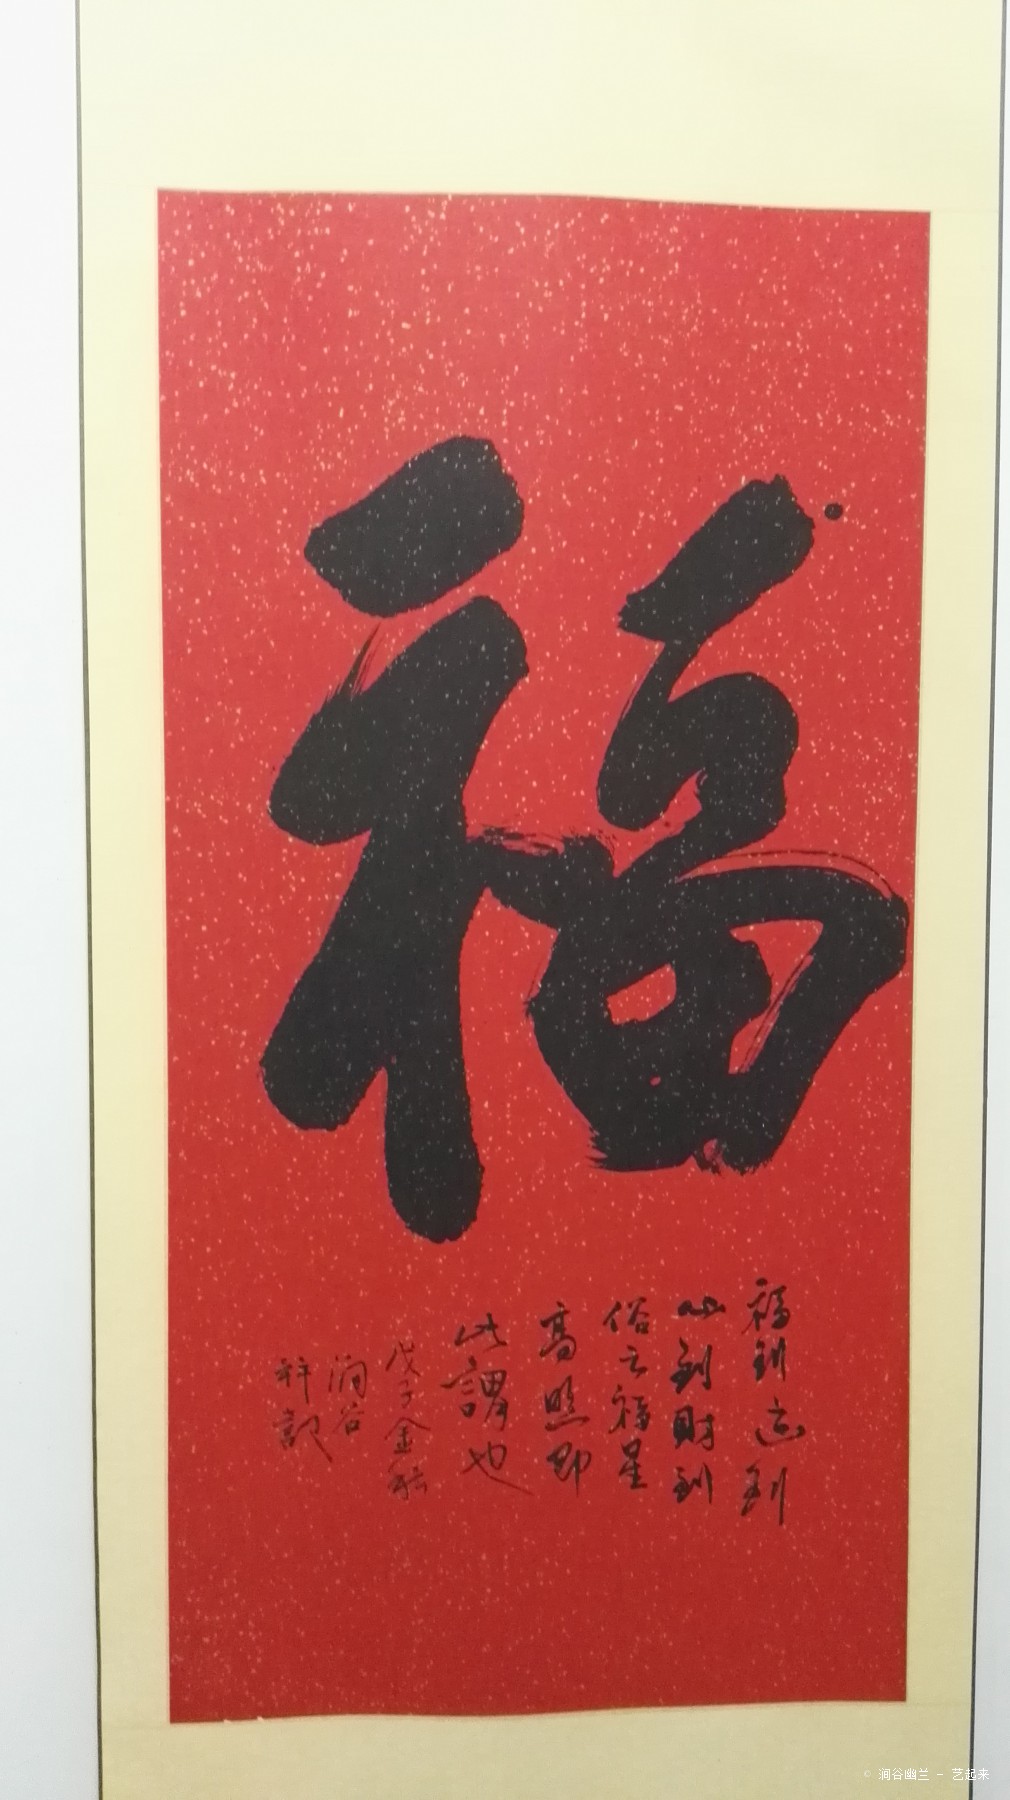 福
福到运到
心到财到
俗云福星
高照即
此謂也
戊子金秋
涧谷
祥記
© 涧谷幽兰 - 艺起来